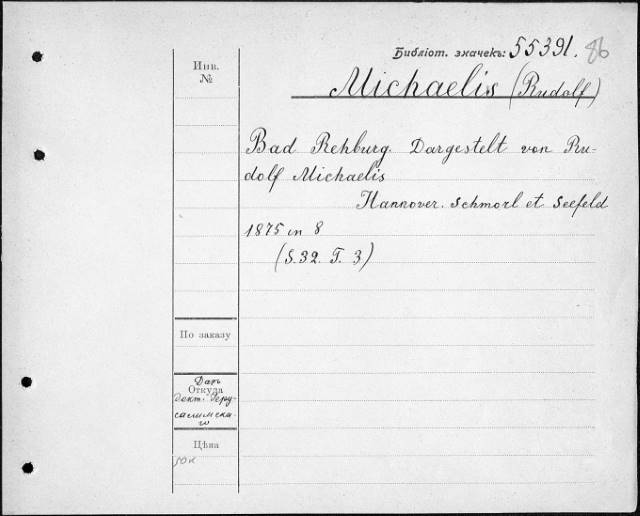 Библіот. значекъ: 55391. 86
Инв.
№
Michaelis (Rudolf)
Bad Rehburg. Dargestelt von Ru-
dolf Michaelis
Hannover. Schmorl et Seefeld
1875 in 8
(S. 32. T. 3)
По заказу
Откуда
Даръ
докт. Іеру-
салимска-
го
Цѣна
50к